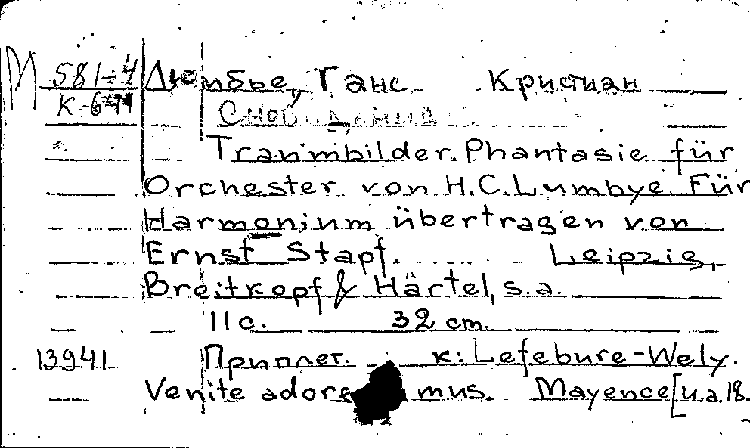 М 581-4 Люмбье, Ганс Кристиан
К-6
Сновидения
Traumbilder. Phantasie für
Orchester von H.C. Lumbye Für
Harmonium übertragen von
Ernst Stapf. Leipzig,
Breitkopf & Härtel, s.a.
11 с. 32 cm.
13941 Приплет. к: Lefebure-Wely.
Venite adore mus. Mayence [u.a. 18